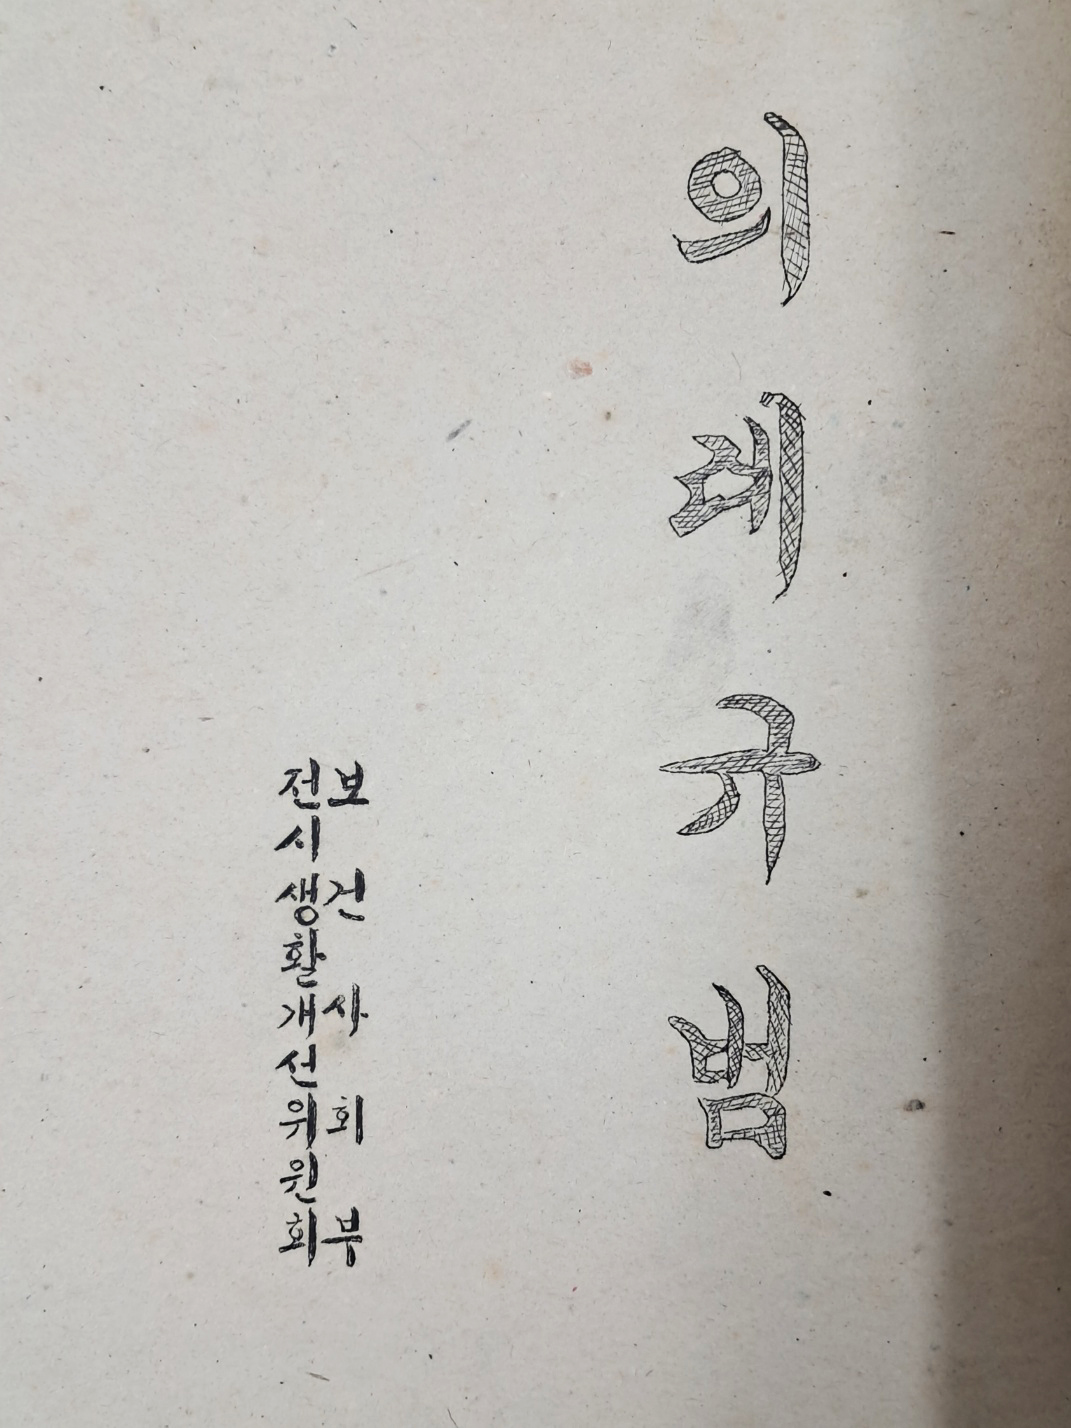 의례규범
보건사회부
전시생활개선위원회